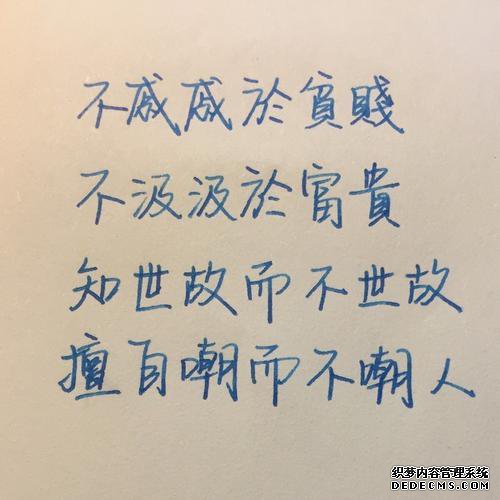 不戚戚於貧賤
不汲汲於富貴
知世故而不世故
擅自嘲而不嘲人
织梦内容管理系统
DEDECMS.COM